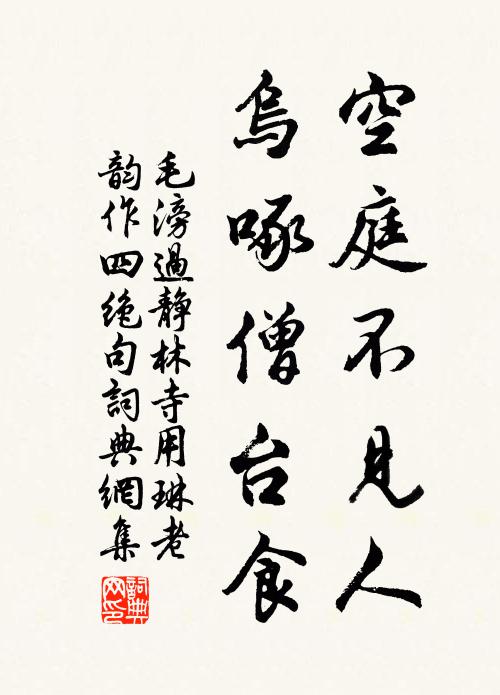 空庭不見人
烏啄僧台食
毛滂過静林寺用琳老
韵作四绝句詞典網集
詞典
网印